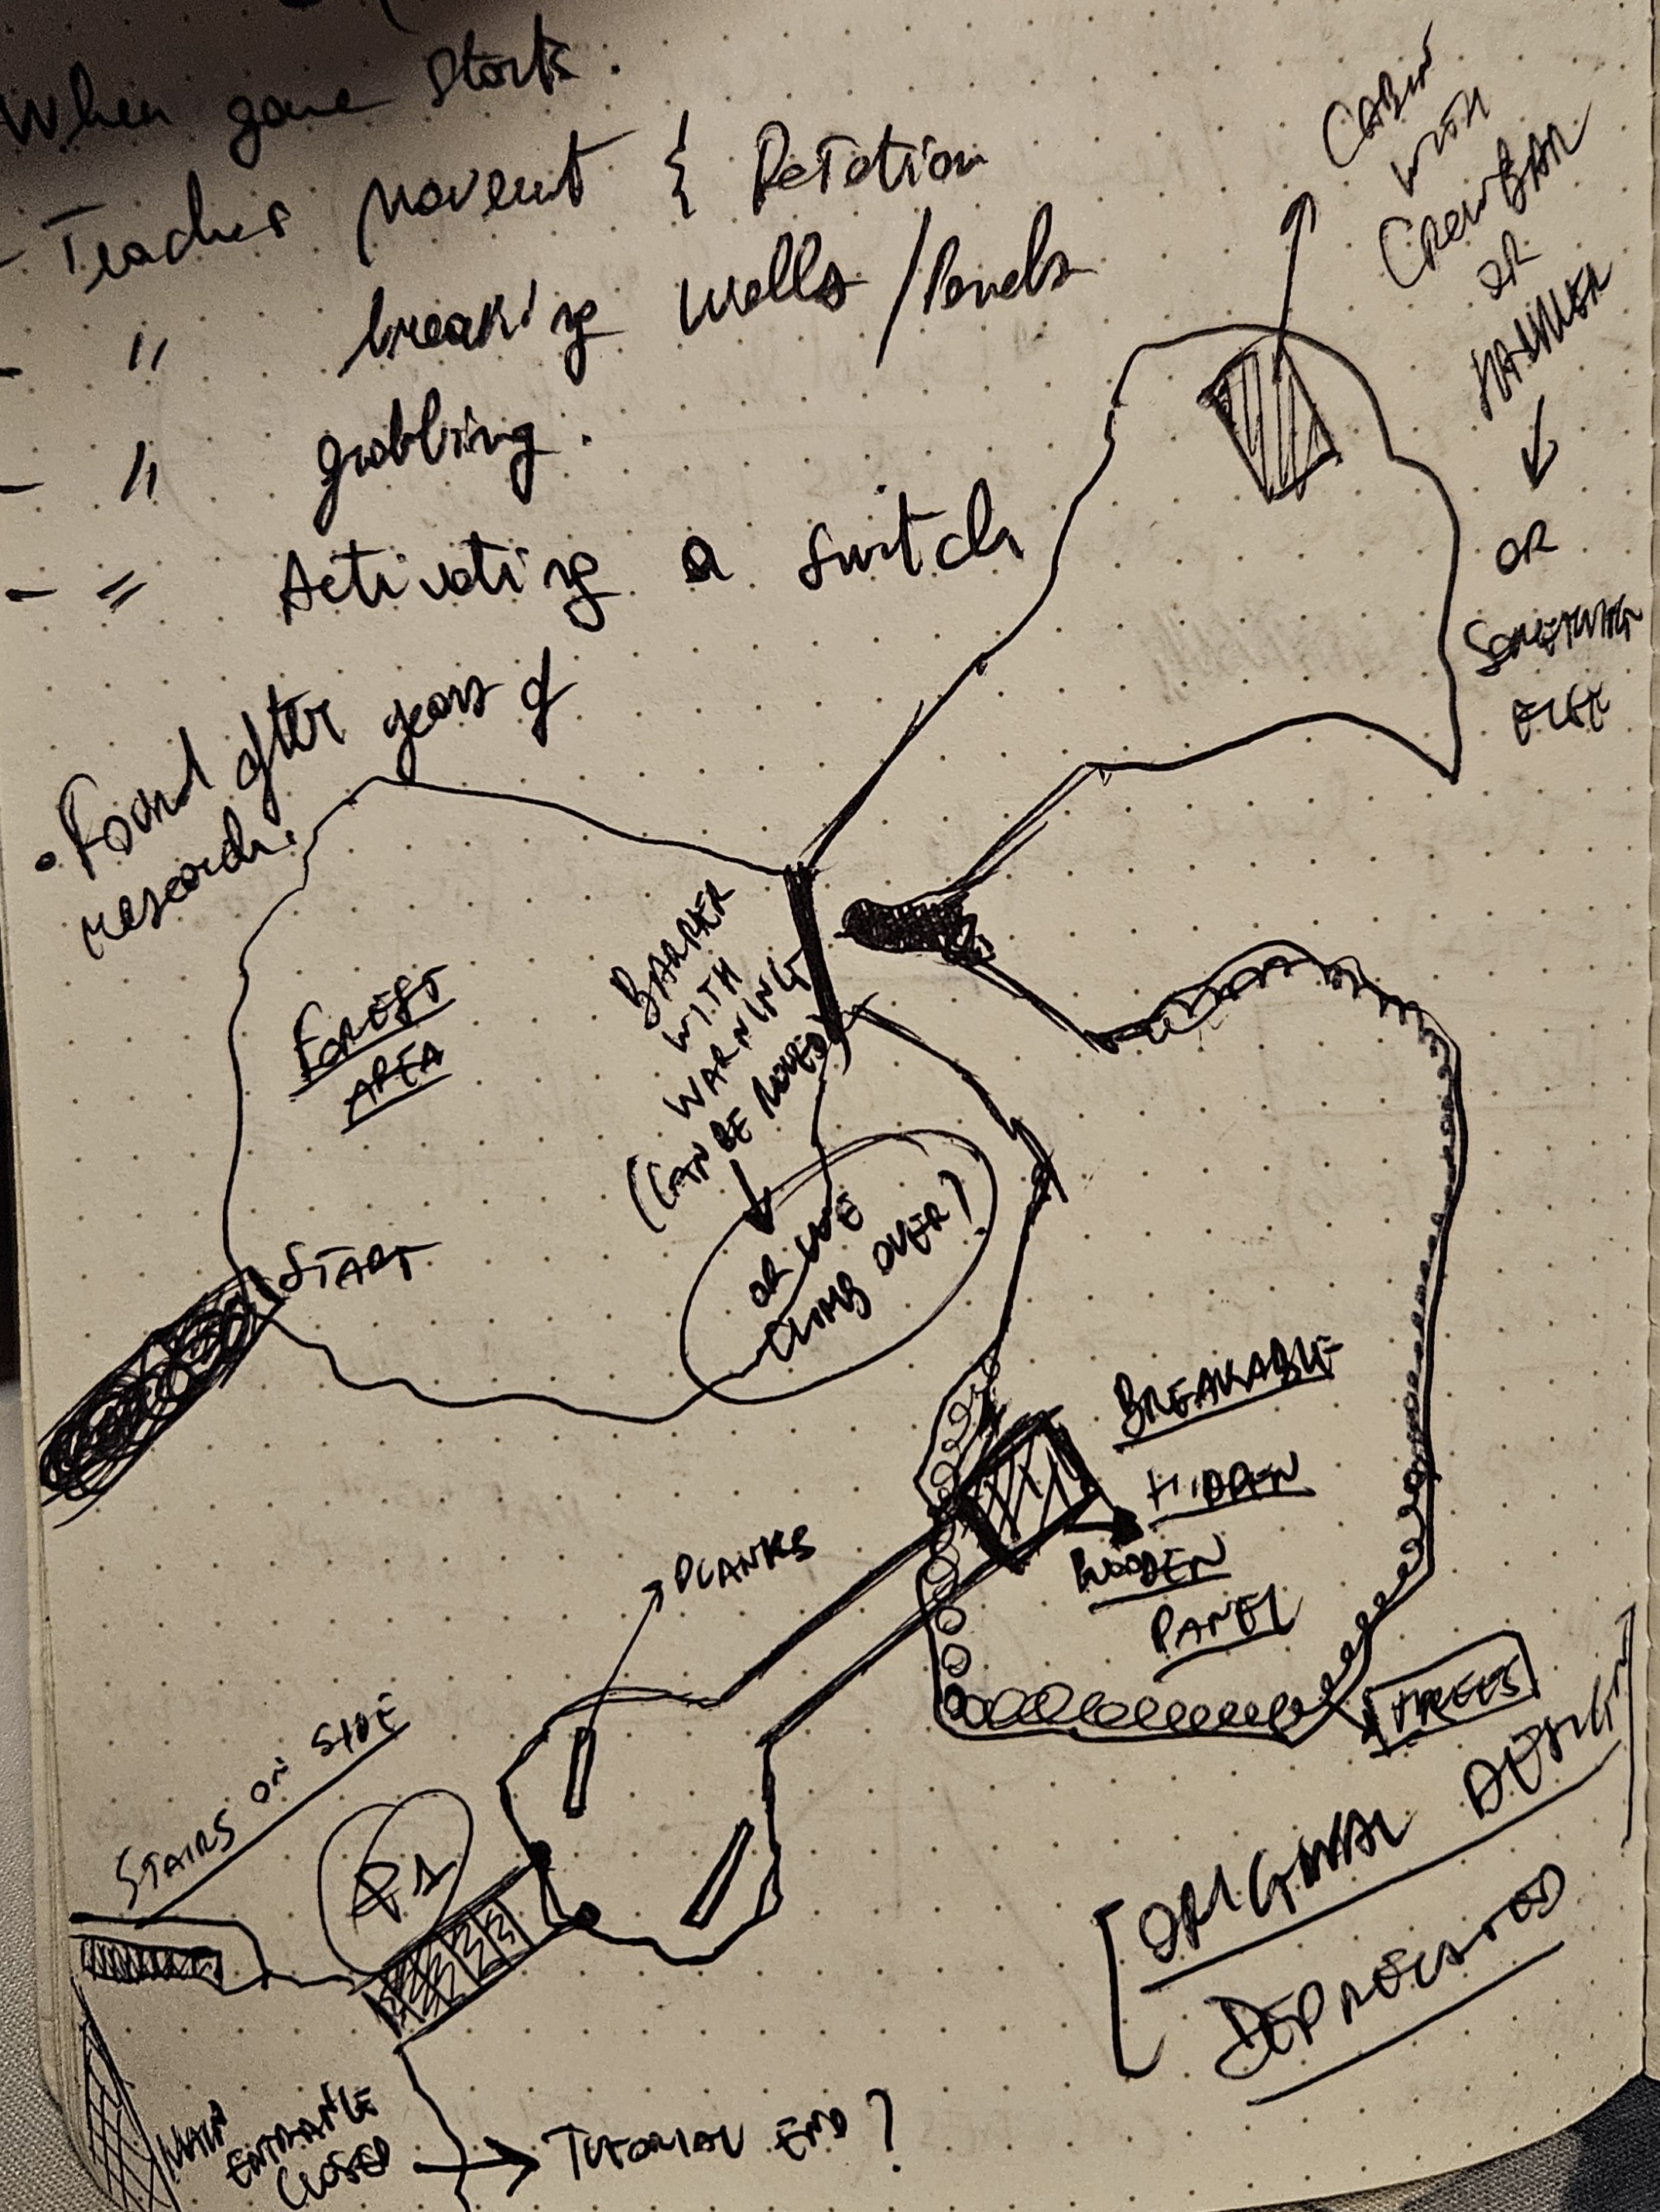 When game starts:
- Teaches movement { Rotation
- " breaking walls/Panels
- " grabbing.
- = Activating a switch
. Found after years of
research.
CABIN
WITH
CROWBAR
OR
HAMMER
OR
SOMETHING
ELSE
FOREST
AREA
BARRIER
WITH
WARNING
(CAN BE MOVED)
OR WE
CLIMB OVER?
START
BREAKABLE
HIDDEN
WOODEN
PANEL
PLANKS
TREES
STAIRS ON SIDE
[ORIGINAL DESIGN]
DEPRECATED
MAIN
ENTRANCE
CLOSED
TUTORIAL END?